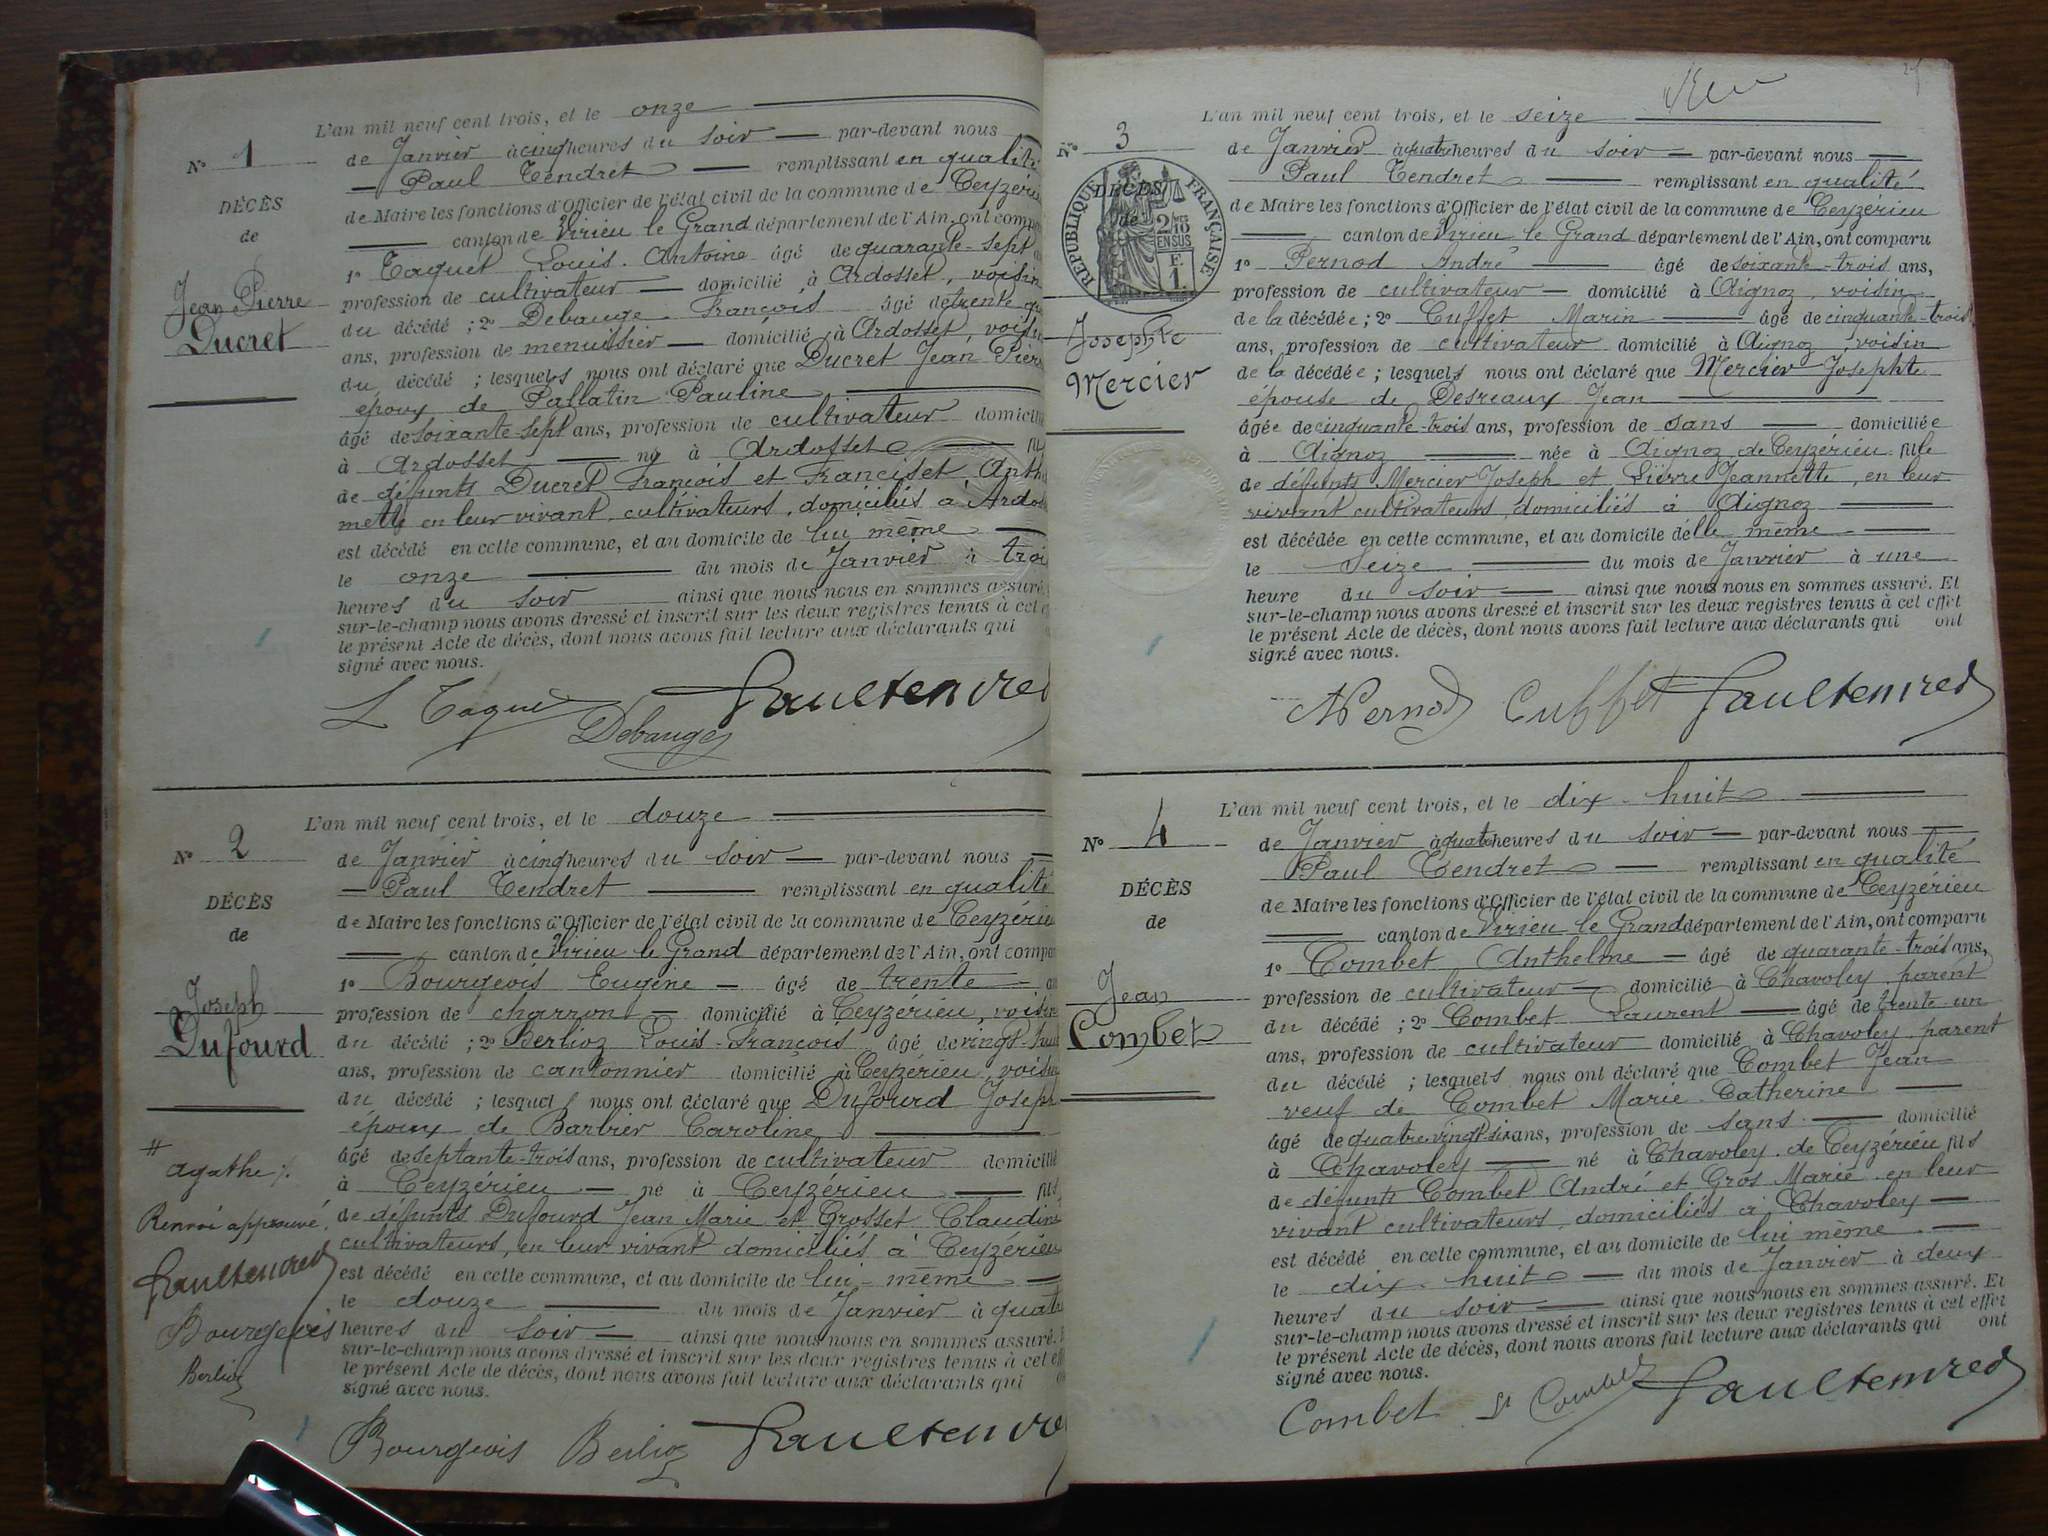 L'an mil neuf cent trois, et le onze
N° 1
de Janvier à cinq heures du soir par-devant nous
Paul Tendret remplissant en qualité
DÉCÈS
de Maire les fonctions d'Officier de l'état civil de la commune de Ceyzérieu
de
canton de Virieu le Grand département de l'Ain, ont compa
1° Taquet Louis Antoine âgé de quarante-sept
Jean Pierre
Ducret
profession de cultivateur domicilié à Ardosset, voisin
du décédé ; 2° Debauge François âgé de trente
ans, profession de menuisier domicilié à Ardosset, voisin
du décédé ; lesquels nous ont déclaré que Ducret Jean Pierr
époux de Pallatin Pauline
âgé de soixante-sept ans, profession de cultivateur domicilié
à Ardosset né à Ardosset fils
de défunts Ducret François et Franciset Anthe
mette en leur vivant, cultivateurs, domiciliés à Ardoss
est décédé en cette commune, et au domicile de lui même
le onze du mois de Janvier à trois
heures du soir ainsi que nous nous en sommes assuré.
sur-le-champ nous avons dressé et inscrit sur les deux registres tenus à cet
le présent Acte de décès, dont nous avons fait lecture aux déclarants qui
signé avec nous.
L Taquet Debauge Paul Tendret
L'an mil neuf cent trois, et le douze
N° 2
de Janvier à cinq heures du soir par-devant nous
Paul Tendret remplissant en qualité
DÉCÈS
de Maire les fonctions d'Officier de l'état civil de la commune de Ceyzérieu
de
canton de Virieu le Grand département de l'Ain, ont compa
1° Bourgeois Eugène âgé de trente
Joseph
Dufourd
profession de charron domicilié à Ceyzérieu, voisin
du décédé ; 2° Berlioz Louis-François âgé de vingt-huit
ans, profession de cantonnier domicilié à Ceyzérieu, voisin
du décédé ; lesquels nous ont déclaré que Dufourd Joseph
époux de Barbier Caroline
âgé de septante-trois ans, profession de cultivateur domicilié
à Ceyzérieu né à Ceyzérieu fils
de défunts Dufourd Jean Marie et Grosset Claudine
cultivateurs, en leur vivant domiciliés à Ceyzérieu
est décédé en cette commune, et au domicile de lui-même
le douze du mois de Janvier à quatre
heures du soir ainsi que nous nous en sommes assuré.
sur-le-champ nous avons dressé et inscrit sur les deux registres tenus à cet
le présent Acte de décès, dont nous avons fait lecture aux déclarants qui
signé avec nous.
# agathe
Renvoi approuvé
Paul Tendret
Bourgeois
Berlioz
Bourgeois Berlioz Paul Tendret
L'an mil neuf cent trois, et le seize
N° 3
de Janvier à quatre heures du soir par-devant nous
Paul Tendret remplissant en qualité
DÉCÈS
de
RÉPUBLIQUE FRANÇAISE
2/10 EN SUS
F. 1
de Maire les fonctions d'Officier de l'état civil de la commune de Ceyzérieu
canton de Virieu le Grand département de l'Ain, ont comparu
1° Pernod André âgé de soixante-trois ans,
profession de cultivateur domicilié à Aignoz, voisin
Josephte
Mercier
de la décédée ; 2° Cusset Marin âgé de cinquante-trois
ans, profession de cultivateur domicilié à Aignoz, voisin
de la décédée ; lesquels nous ont déclaré que Mercier Josephte
épouse de Desreaux Jean
âgée de cinquante-trois ans, profession de sans domiciliée
à Aignoz née à Aignoz, de Ceyzérieu fille
de défunts Mercier Joseph et Lierre Jeannette, en leur
vivant cultivateurs, domiciliés à Aignoz
est décédée en cette commune, et au domicile d'elle même
le Seize du mois de Janvier à une
heure du soir ainsi que nous nous en sommes assuré. Et
sur-le-champ nous avons dressé et inscrit sur les deux registres tenus à cet effet
le présent Acte de décès, dont nous avons fait lecture aux déclarants qui ont
signé avec nous.
A Pernod Cusset Paul Tendret
L'an mil neuf cent trois, et le dix-huit
N° 4
de Janvier à quatre heures du soir par-devant nous
Paul Tendret remplissant en qualité
DÉCÈS
de Maire les fonctions d'Officier de l'état civil de la commune de Ceyzérieu
de
canton de Virieu le Grand département de l'Ain, ont comparu
1° Combet Anthelme âgé de quarante-trois ans,
Jean
Combet
profession de cultivateur domicilié à Chavoley, parent
du décédé ; 2° Combet Laurent âgé de trente-un
ans, profession de cultivateur domicilié à Chavoley, parent
du décédé ; lesquels nous ont déclaré que Combet Jean
veuf de Combet Marie-Catherine
âgé de quatre-vingt-six ans, profession de sans domicilié
à Chavoley né à Chavoley, de Ceyzérieu fils
de défunts Combet André et Gros Marie en leur
vivant cultivateurs, domiciliés à Chavoley
est décédé en cette commune, et au domicile de lui même
le dix-huit du mois de Janvier à deux
heures du soir ainsi que nous nous en sommes assuré. Et
sur-le-champ nous avons dressé et inscrit sur les deux registres tenus à cet effet
le présent Acte de décès, dont nous avons fait lecture aux déclarants qui ont
signé avec nous.
Combet Combet Paul Tendret